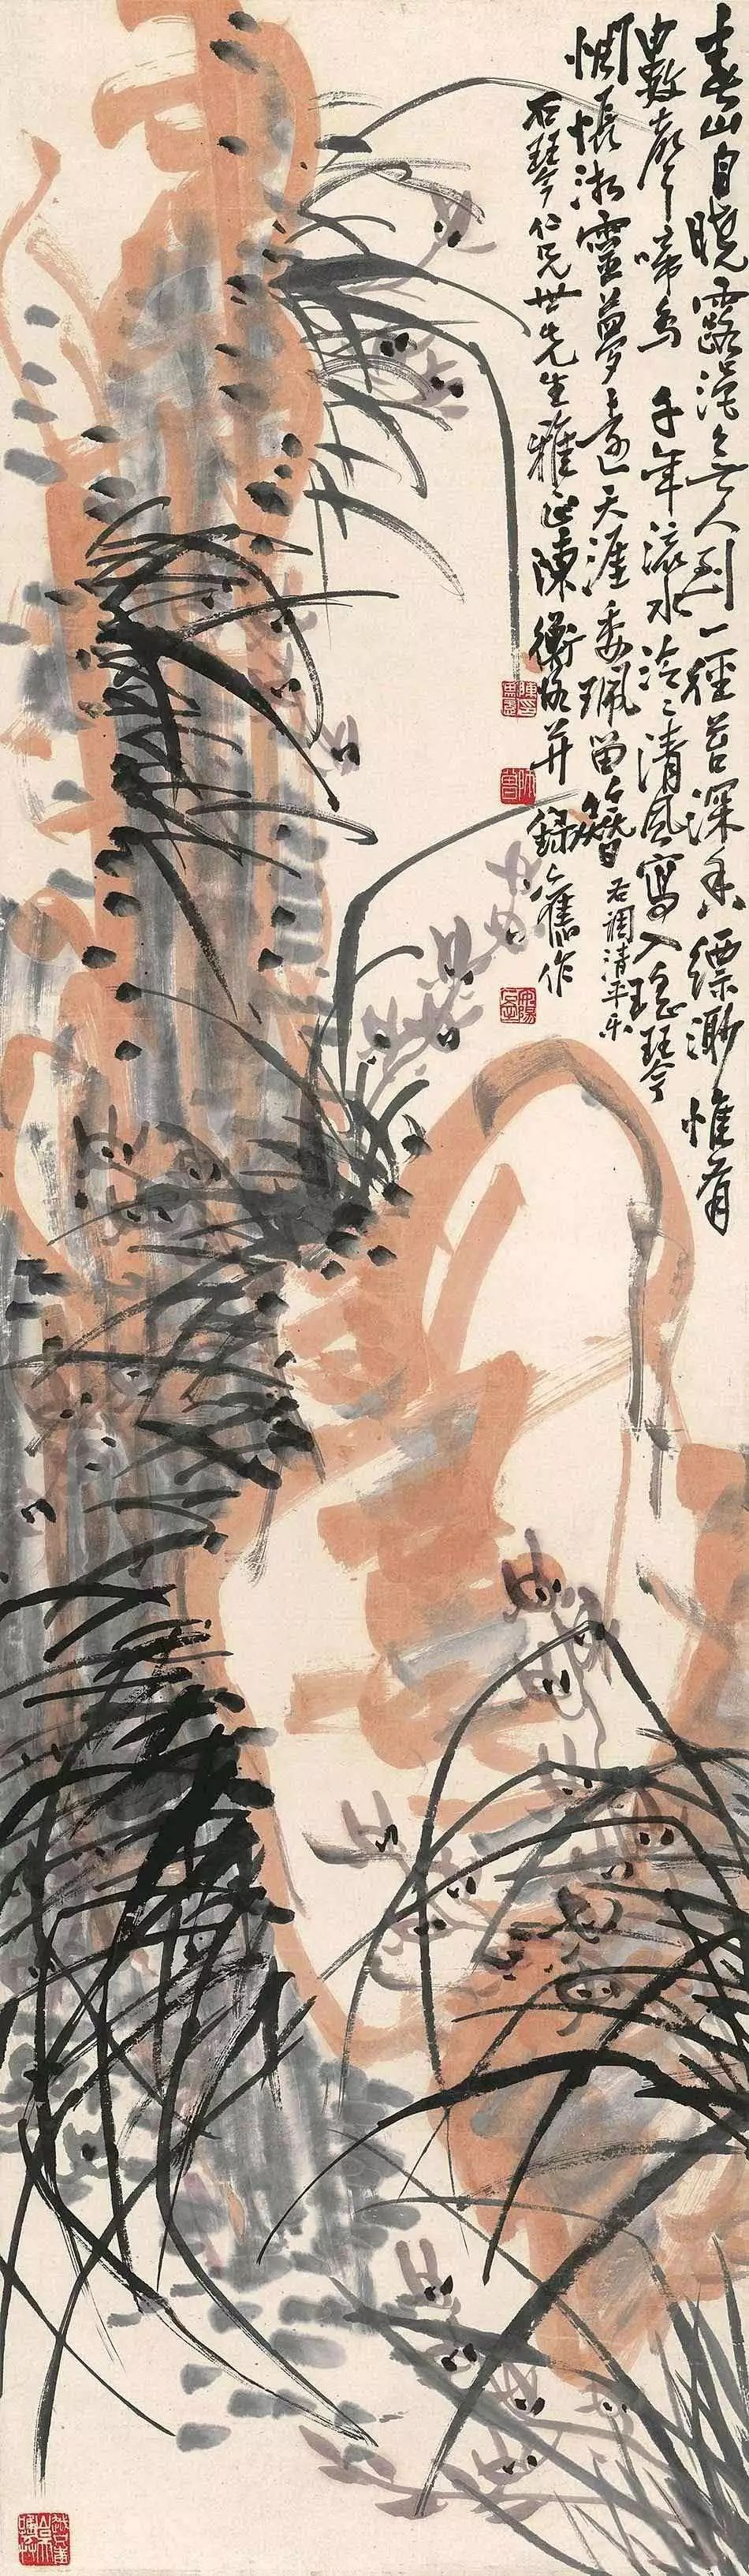 春山自曉露浥無人到一徑苔深香縹渺惟有
數聲啼鳥 千年流水泠泠清風寫入瑤琴
惆悵湘靈夢遠天涯委珮留簪 右調清平樂
石琴仁兄世先生雅正陳衡恪并錄舊作
師曾